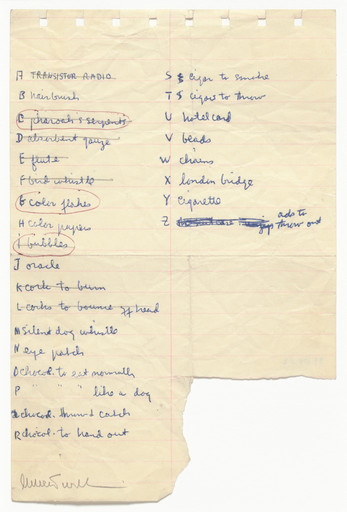 A TRANSISTOR RADIO
B hairbrush
C pharoah's serpents
D absorbent gauze
E flute
F bird whistle
G color flakes
H color papers
I bubbles
J oracle
K cork to burn
L corks to bounce off head
M silent dog whistle
N eye patch
O chocol. to eat normally
P " " " like a dog
Q chocol. throw & catch
R chocol. to hand out
S 5 cigar to smoke
T 5 cigars to throw
U hotel card
V beads
W chains
X london bridge
Y cigarette
Z ads to
throw out